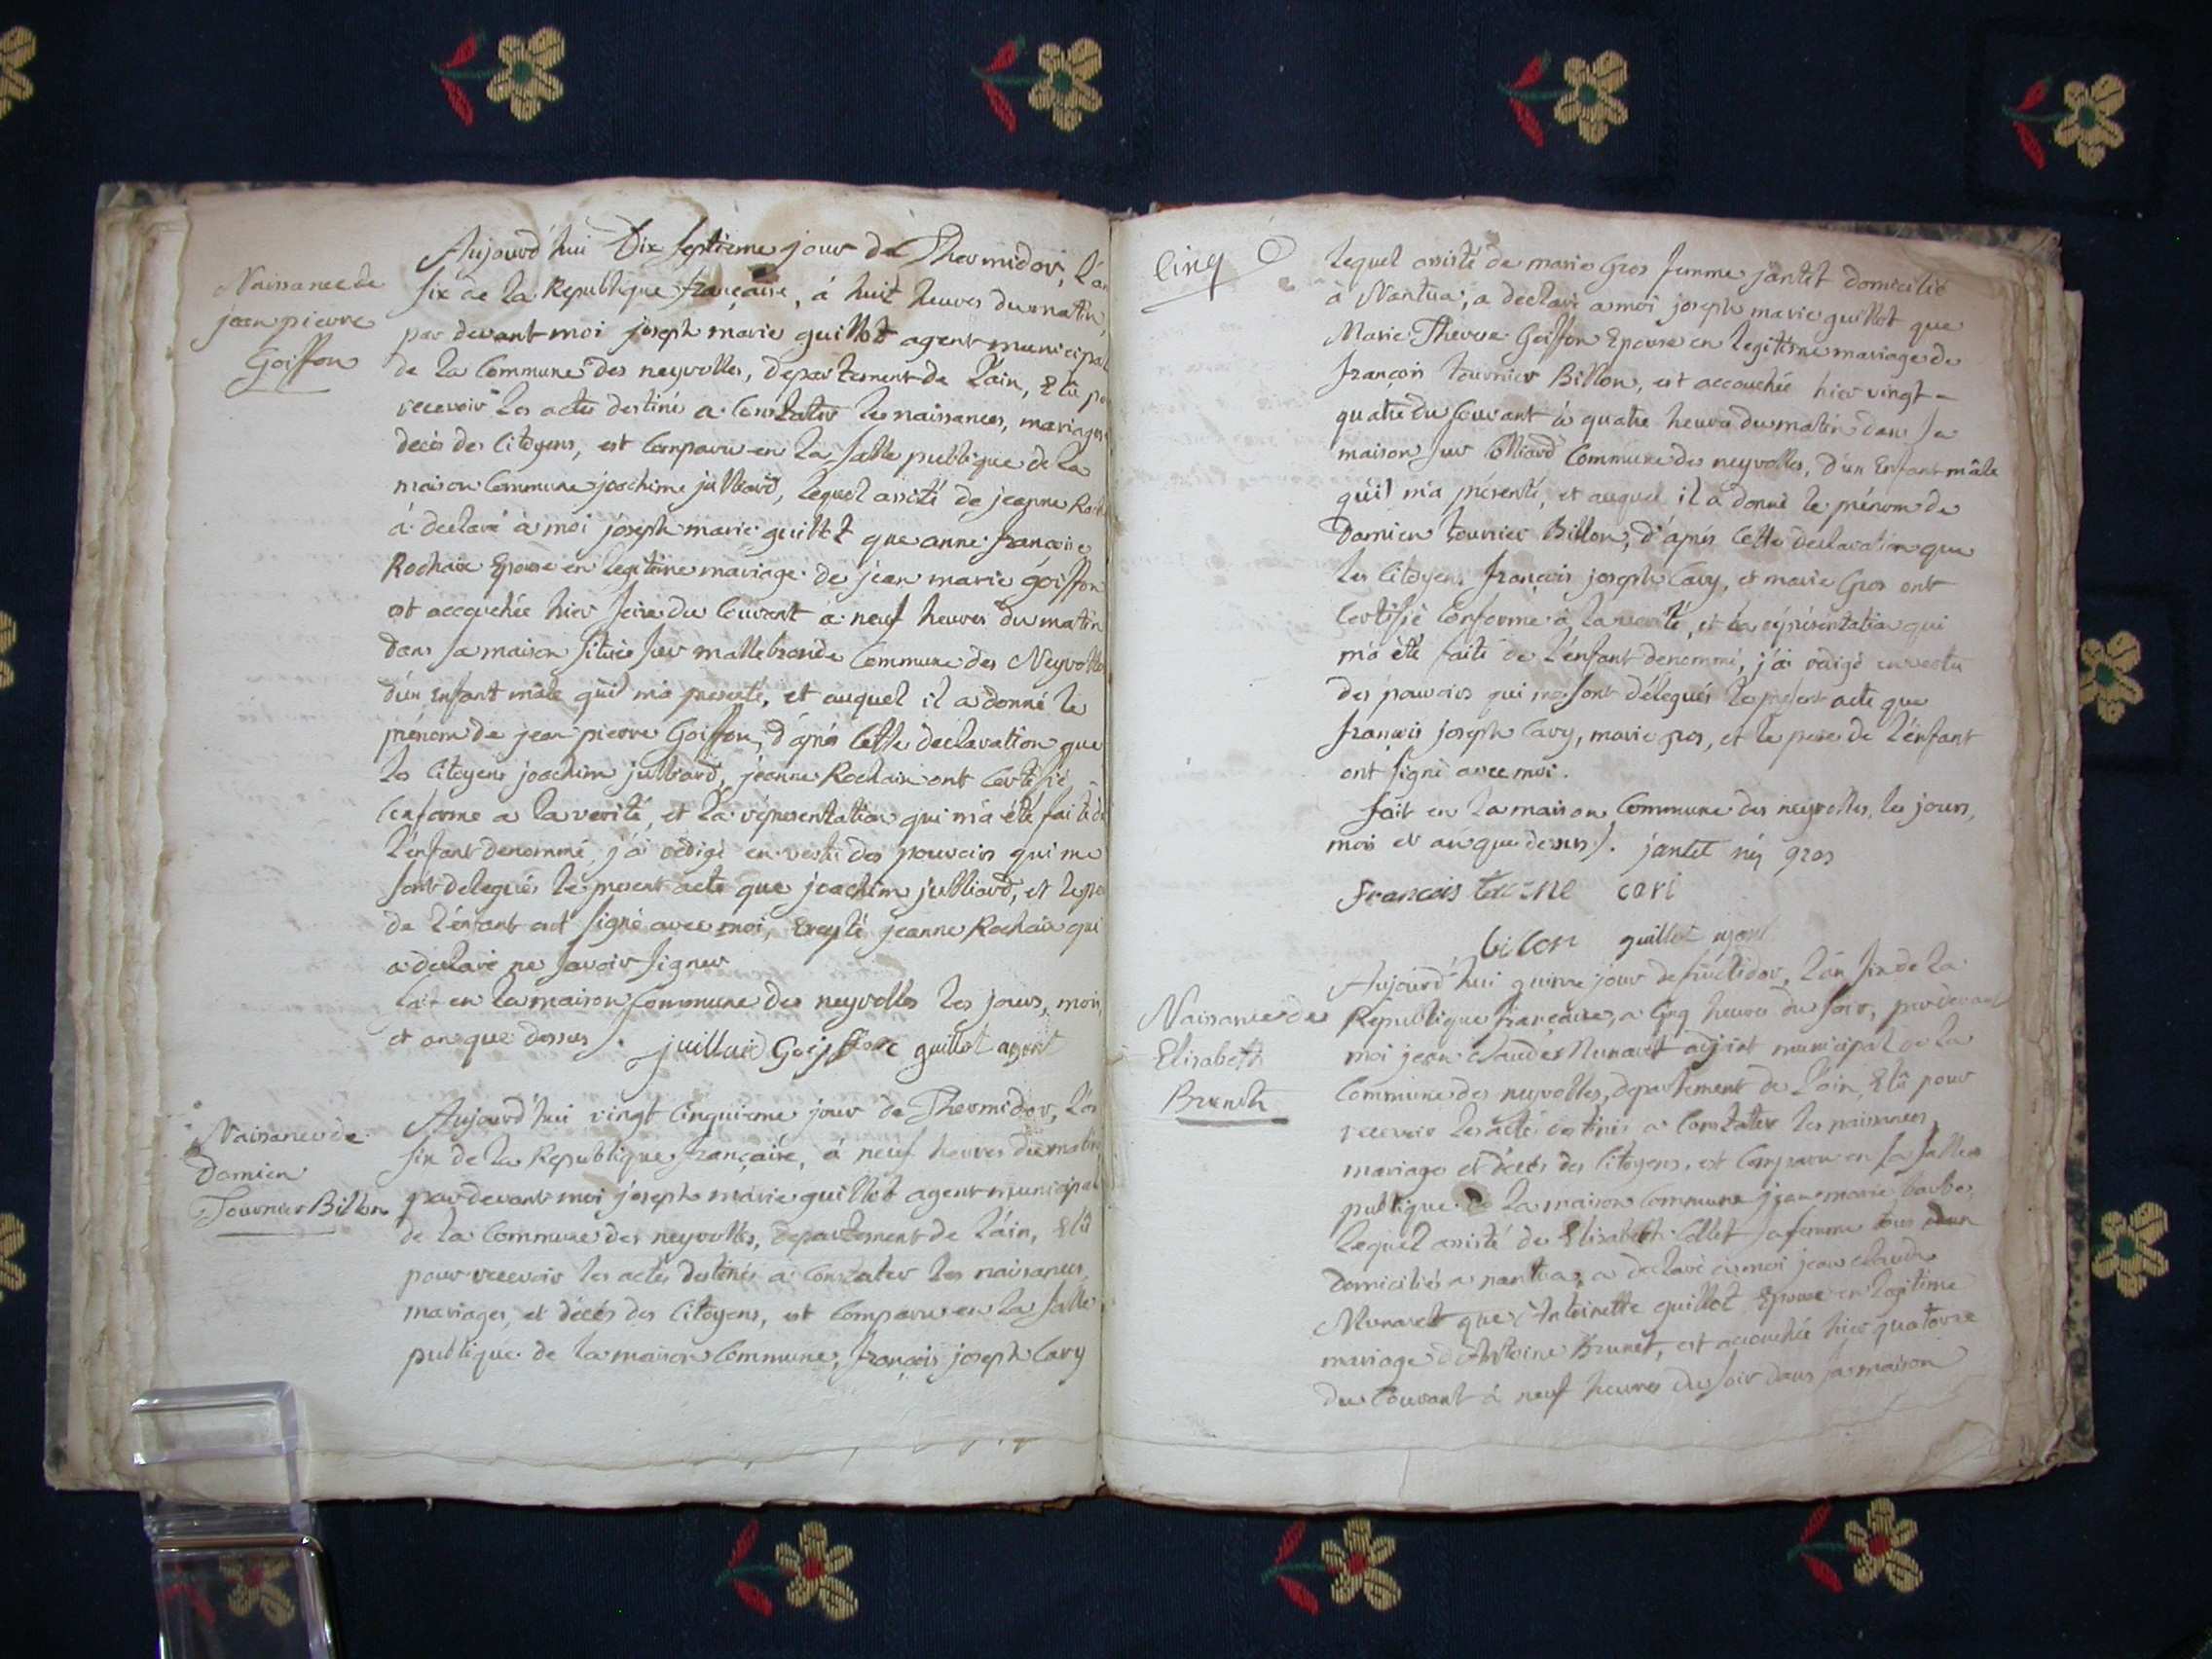 Naissance de
jean pierre
Goiffon
Aujourd'hui Dix septieme jour de Thermidor, l'an
six de la Republique française, à huit heures du matin,
par devant moi joseph marie guillot agent municipal
de la Commune des neyrolles, departement de l'ain, Elû po
recevoir les actes destinés a Constater les naissances, mariages
decès des Citoyens, est Comparu en la Salle publique de la
maison Commune joachime julliard, lequel assisté de jeanne Roch
à declaré à moi joseph marie guillot que anne françoise
Rochaix Epouse en legitime mariage de jean marie goiffon
est accouchée hier seize du Courant à neuf heures du matin
dans sa maison située sur mallebronde Commune des Neyrolles
d'un Enfant mâle qu'il m'a presenté, et auquel il a donné le
prénom de jean pierre Goiffon, d'après Cette declaration que
les Citoyens joachim julliard, jeanne Rochaix ont Certifié
Conforme a la verité, et la réprésentation qui m'a été faite de
l'enfant denommé, j'ai rédigé en vertu des pouvoirs qui me
sont delegués le present acte que joachim julliard, et le pe
de l'énfant ont signé avec moi, Excepté jeanne Rochaix qui
a declaré ne savoir signer
fait en la maison Commune des neyrolles les jours, mois,
et an que dessus. juilliard Goiffon guillot agent
Naissance de
Damien
Tournier Billon
Aujourd'hui vingt Cinquieme jour de Thermidor, l'an
six de la Republique française, à neuf heures du matin
par devant moi joseph marie guillot agent municipal
de la Commune des neyrolles, departement de l'ain, Elû
pour recevoir les actes destinés a Constater les naissances,
mariages, et décès des Citoyens, est Comparu en la Salle
publique de la maison Commune, françois joseph Cary
Cinq
lequel assisté de marie Gros femme jantet domicilié
à Nantua, a declaré a moi joseph marie guillot que
Marie Therese Goiffon Epouse en legitime mariage de
françois tournier Billon, est accouchée hier vingt-
quatre du Courant à quatre heures du matin dans sa
maison sur Colliard Commune des neyrolles, d'un Enfant mâle
qu'il m'a présenté, et auquel il a donné le prénom de
Damien tournier Billon, d'après Cette declaration que
les Citoyens françois joseph Cary, et marie Gros ont
Certifié Conforme à la verité, et la réprésentation qui
m'a été faite de l'énfant denommé, j'ai rédigé en vertu
des pouvoirs qui me sont délegués le présent acte que
françois joseph Cary, marie gros, et le pere de l'énfant
ont signé avec moi.
fait en la maison Commune des neyrolles, les jours,
mois et an que dessus. jantet néz gros
francois cari
bilon guillot agent
Naissance de
Elisabeth
Brunet
Aujourd'hui quinze jour de fructidor, l'an six de la
Republique française, a Cinq heures du soir, par devant
moi jean Claude Munaret adjoint municipal de la
Commune des neyrolles, departement de l'ain, Elû pour
recevoir les actes destinés a Constater les naissances,
mariages et décès des Citoyens, est Comparu en la salle
publique de la maison Commune jean marie barbe,
lequel assisté de Elisabeth Collet sa femme tous deux
domiciliés a nantua, a declaré à moi jean claude
Munaret que Antoinette guillot Epouse en legitime
mariage d'Antoine Brunet, est accouchée hier quatorze
du Courant à neuf heures du soir dans sa maison